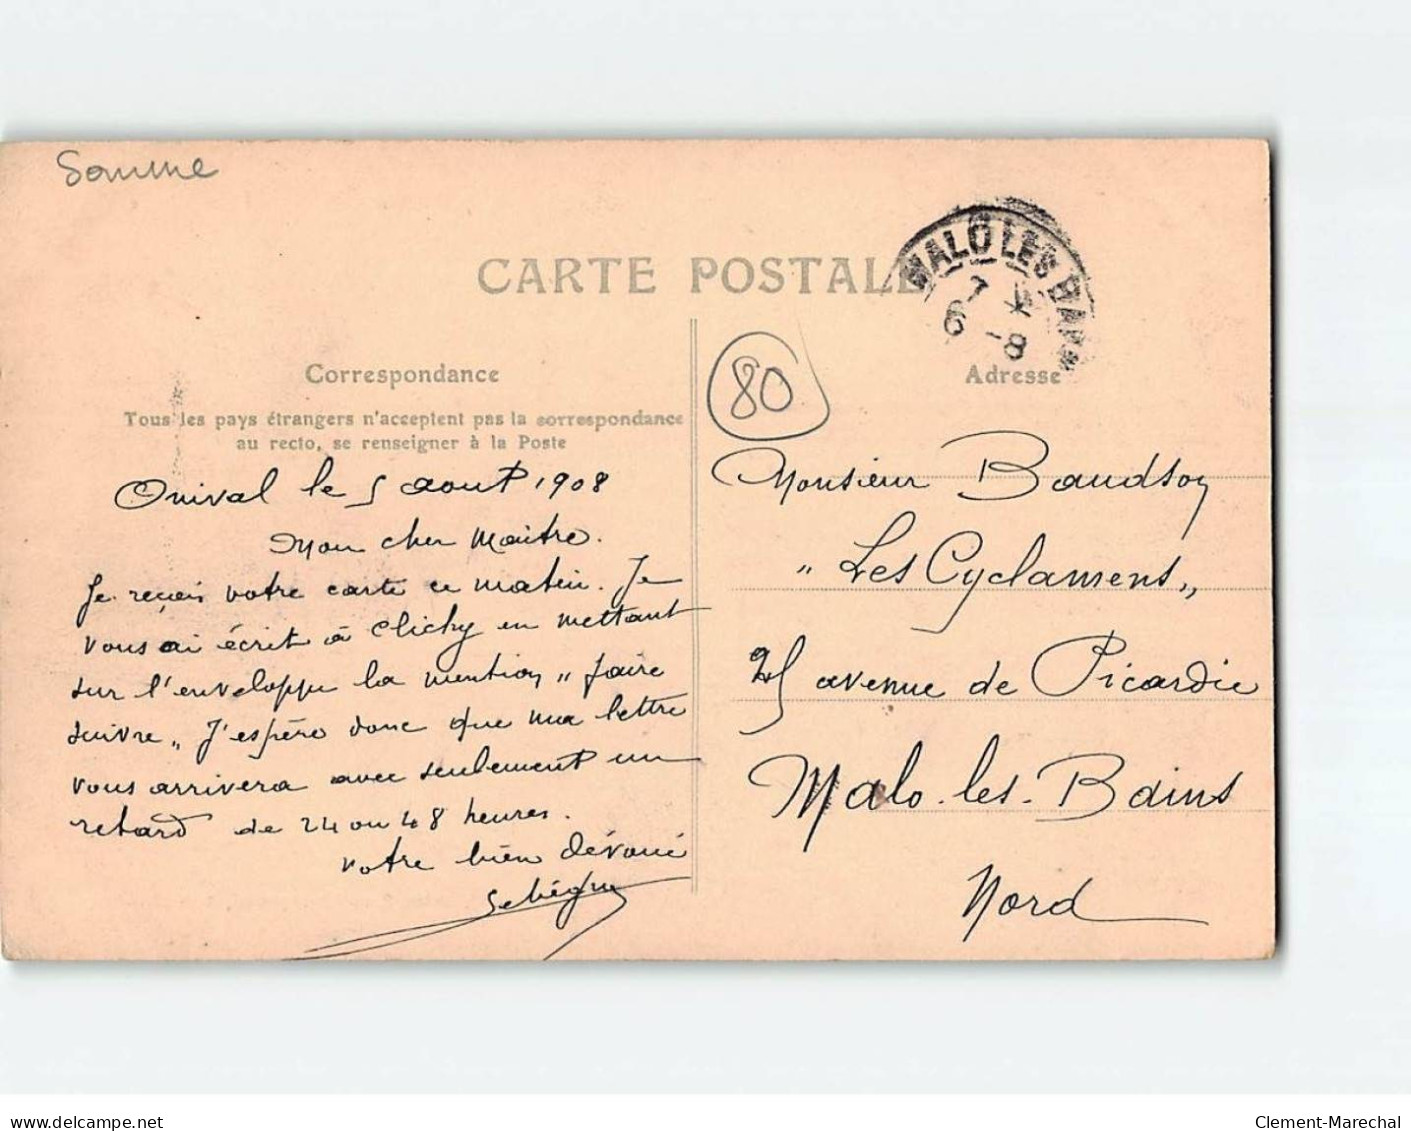 Somme
CARTE POSTALE
MALO LES BAINS
7
6 -8
80
Correspondance
Tous les pays étrangers n'acceptent pas la correspondance
au recto, se renseigner à la Poste
Adresse
Onival le 5 aout 1908
Mon cher Maitre.
Je reçois votre carte ce matin. Je
vous ai écrit à Clichy en mettant
sur l'enveloppe la mention „ faire
suivre „ J'espère donc que ma lettre
vous arrivera avec seulement un
retard de 24 ou 48 heures.
votre bien dévoué
Monsieur Baudson
" Les Cyclamens „
25 avenue de Picardie
Malo-les-Bains
Nord
www.delcampe.net
Clement-Marechal